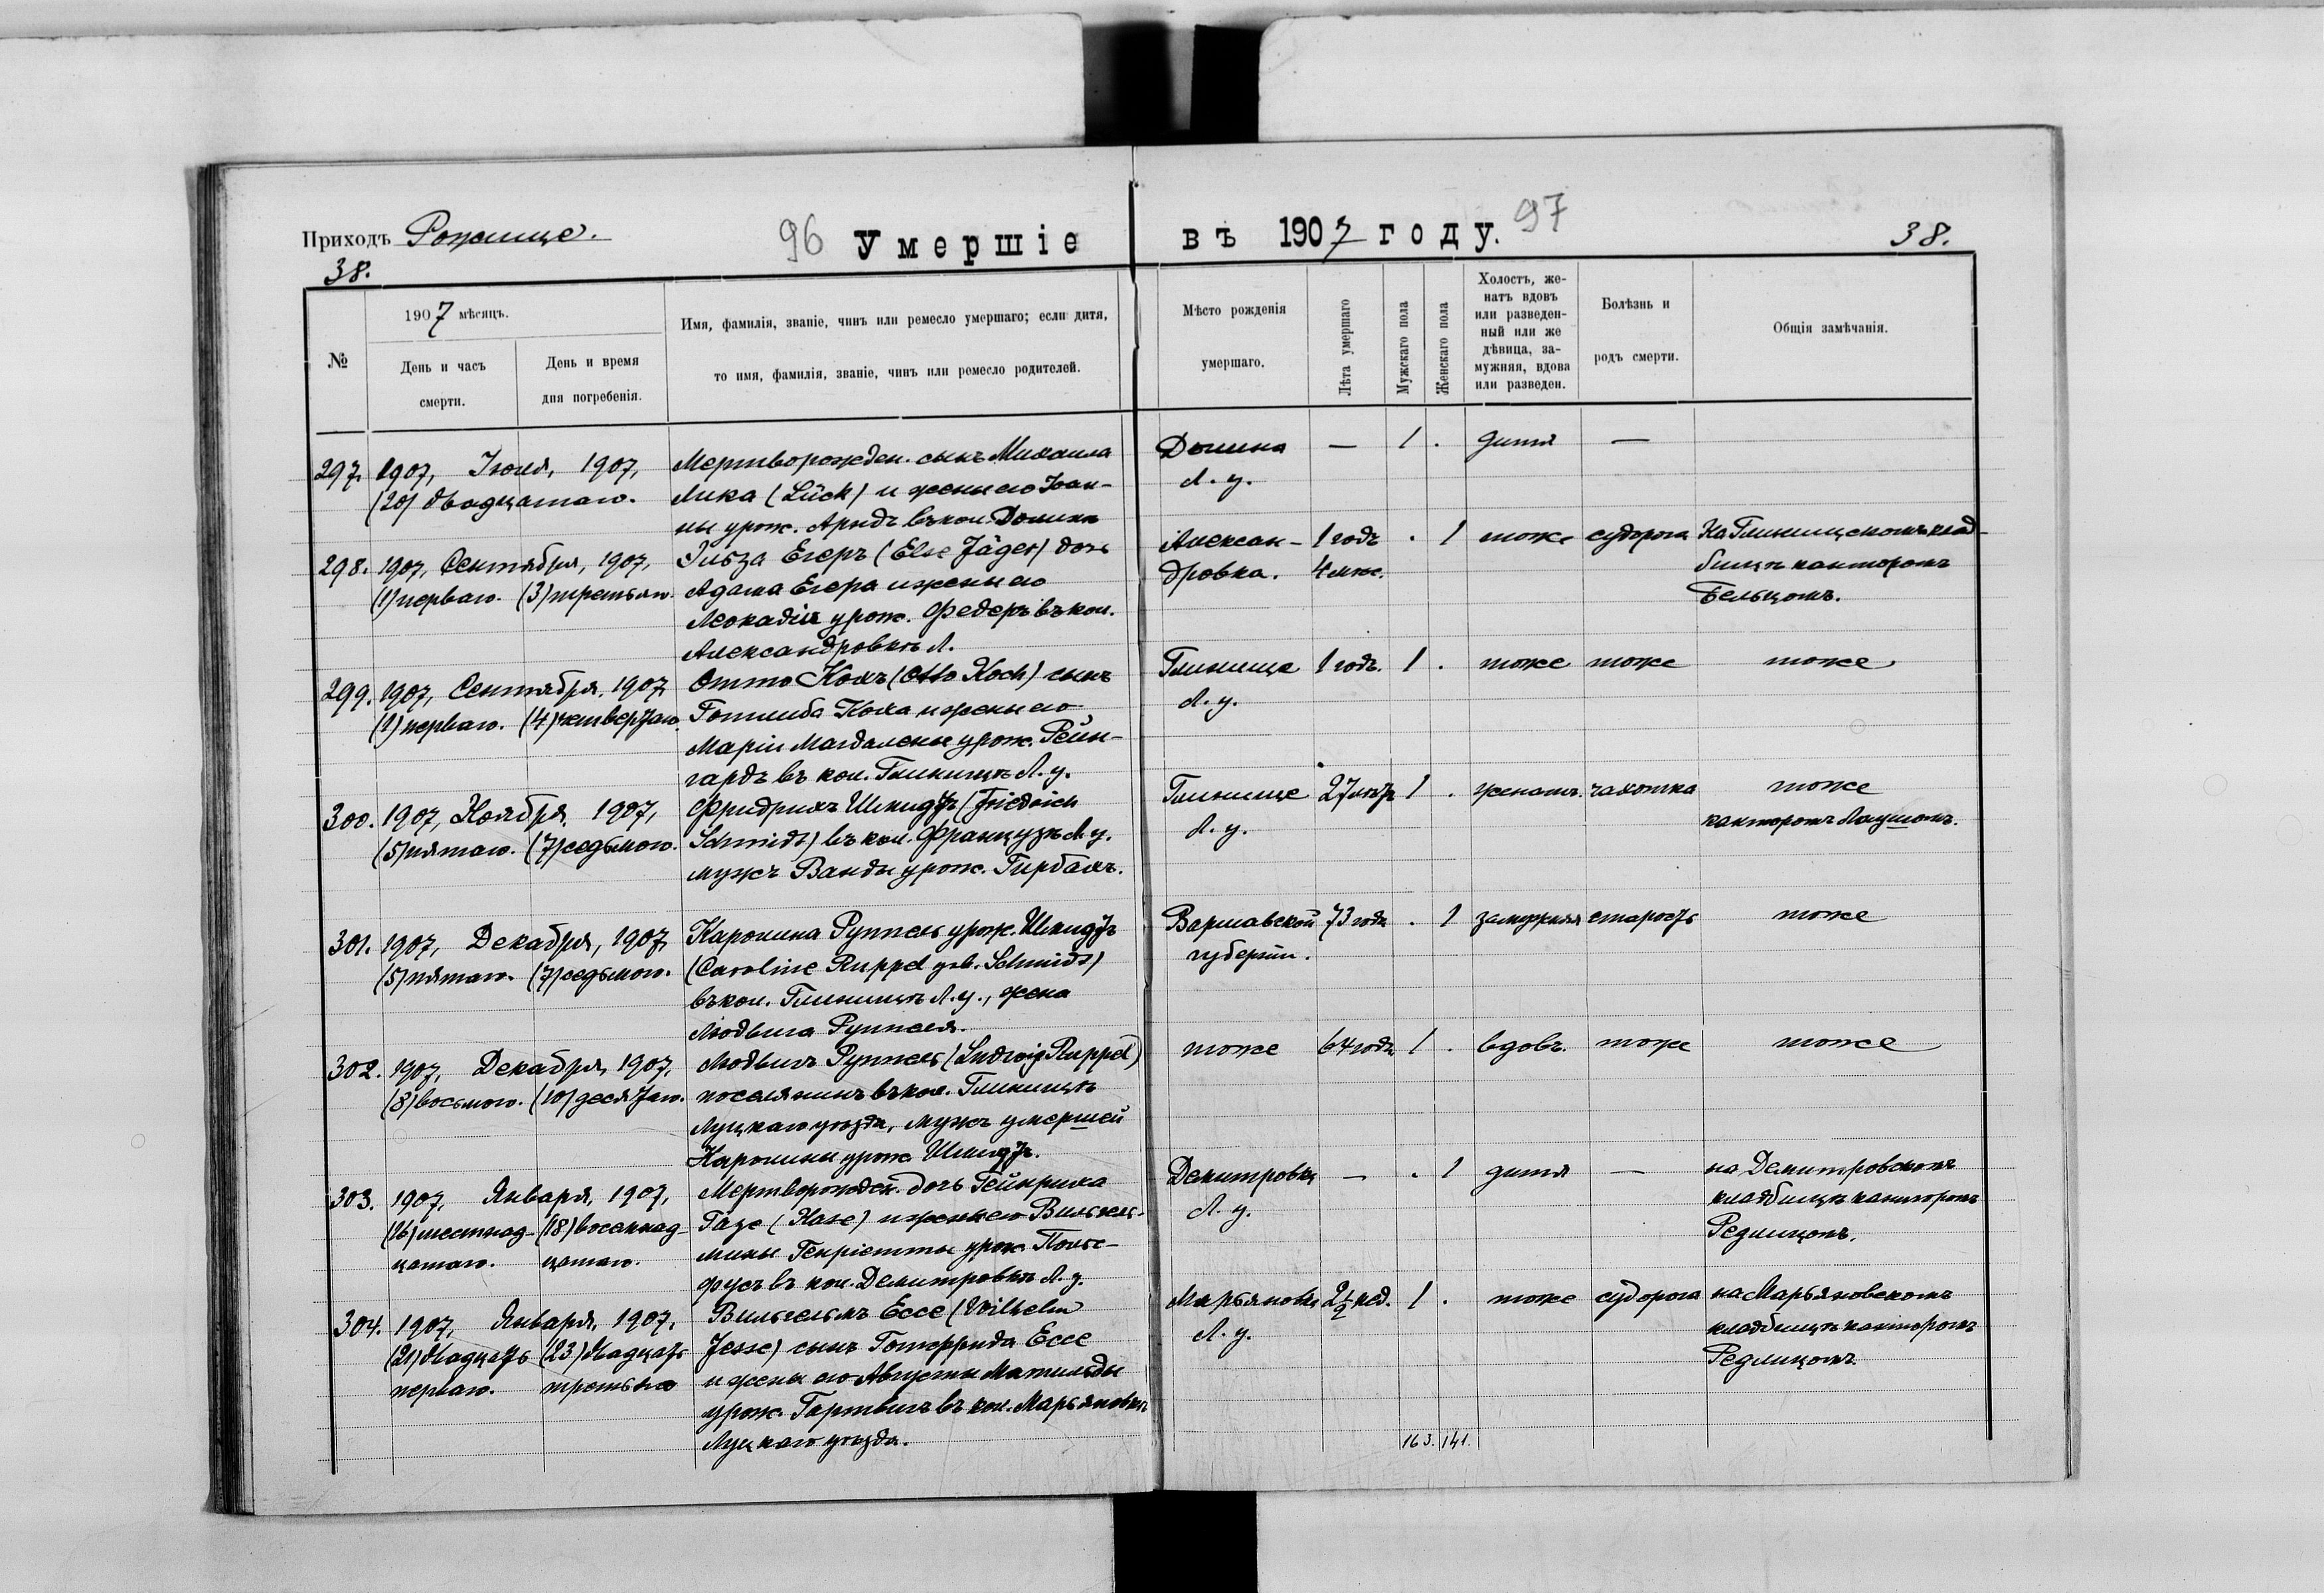 Приходъ Рожище.
96 Умершіе въ 1907 году. 97
38. 38.
№
1907 мѣсяцъ.
День и часъ смерти.
День и время дня погребенія.
Имя, фамилія, званіе, чинъ или ремесло умершаго; если дитя,
то имя, фамилія, званіе, чинъ или ремесло родителей.
Мѣсто рожденія
умершаго.
Лѣта умершаго
Мужскаго пола
Женскаго пола
Холостъ, же-
натъ вдовъ
или разведен-
ный или же
дѣвица, за-
мужняя, вдова
или разведен.
Болѣзнь и
родъ смерти.
Общія замѣчанія.
297. 1907, Іюля, 1907, Мертворожден. сынъ Михаила Долина — 1 . дитя —
(20) двадцатаго. Лика (Lück) и жены его Іоан- Л. у.
ны урож. Арндъ въ кол. Долинѣ
298. 1907, Сентября, 1907, Эльза Егеръ (Else Jäger) дочь Алексан- 1 годъ . 1 тоже судорога На Глинищскомъ клад-
(1) перваго. (3) третьяго. Адама Егера и жены его дровка. 4 мѣс. бищѣ канторомъ
Леокадіи урож. Федеръ въ кол. Бельцомъ.
Александровкѣ Л.
299. 1907, Сентября, 1907, Отто Кохъ (Otto Koch) сынъ Глинище 1 годъ. 1 . тоже тоже тоже
(1) перваго. (4) четвертаго. Готлиба Коха и жены его Л. у.
Маріи Магдалены урож. Рейн-
гардъ въ кол. Глинищѣ Л. у.
300. 1907, Ноября, 1907, Фридрихъ Шмидтъ (Friedrich Глинище 27 лѣтъ 1 . женатъ. чахотка тоже
(5) пятаго. (7) седьмого. Schmidt) въ кол. Французѣ Л. у. Л. у. канторомъ Лаушомъ.
мужъ Ванды урож. Гирбахъ.
301. 1907, Декабря, 1907, Каролина Руппель урож. Шмидтъ Варшавской 73 года . 1 замужняя старость тоже
(5) пятаго. (7) седьмого. (Caroline Ruppel geb. Schmidt) губерніи.
въ кол. Глинищѣ Л. у., жена
Людвига Руппеля.
302. 1907, Декабря, 1907, Людвигъ Руппель (Ludwig Ruppel) тоже 64 года 1 . вдовъ. тоже тоже
(8) восьмого. (10) десятаго. поселянинъ въ кол. Глинищѣ
Луцкаго уѣзда, мужъ умершей
Каролины урож. Шмидтъ.
303. 1907, Января, 1907, Мертворожден. дочь Гейнриха Демитровка — . 1 дитя — на Демитровскомъ
(16) шестнад- (18) восемнад- Газе (Hase) и жены его Вильгель- Л. у. кладбищѣ канторомъ
цатаго. цатаго. мины Генріетты урож. Польс- Редлицомъ.
фусъ въ кол. Демитровкѣ Л. у.
304. 1907, Января, 1907, Вильгельмъ Ессе (Wilhelm Марьяновка 2½ нед. 1 . тоже судорога на Марьяновскомъ
(21) двадцать (23) двадцать Jesse) сынъ Готфрида Ессе Л. у. кладбищѣ канторомъ
перваго. третьяго и жены его Августы Матильды Редлицомъ.
урож. Гартвигъ въ кол. Марьяновкѣ
Луцкаго уѣзда.
163. 141.